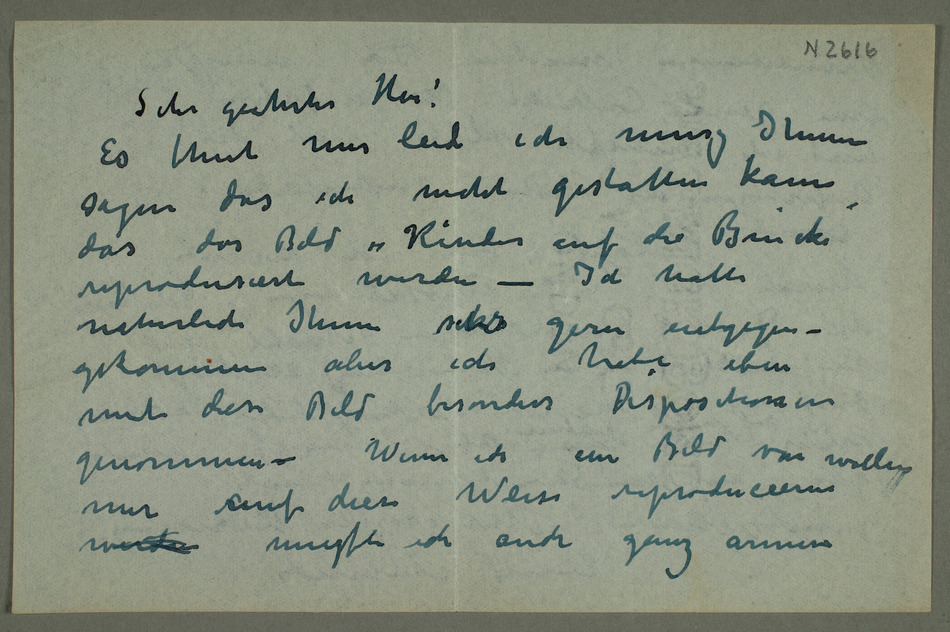 N 2616
Sehr geehrter Herr!
Es thut mir leid ich muss Ihnen
sagen das ich nicht gestatten kann
das das Bild „Kinder auf die Brücke"
reproduciert werden — Ich hatte
naturlich Ihnen sehr gern entgegen-
gekommen aber ich habe eben
mit das Bild besonders Dispositionen
genommen — Wenn ich ein Bild von
mir auf diese Weise reproduceeren
musste ich auch ganz